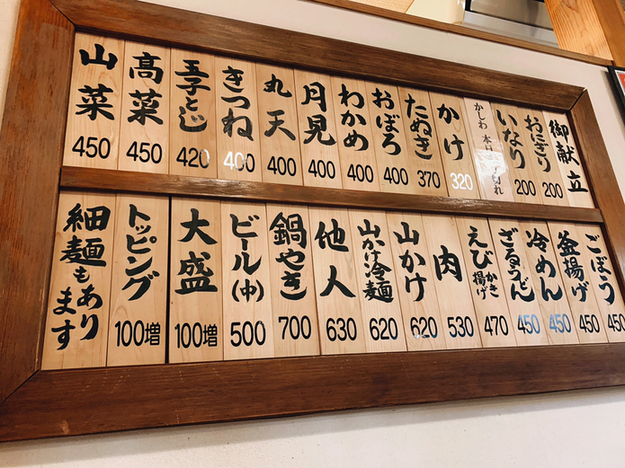 御献立
おにぎり 200
いなり 200
かしわ 本日売り切れ
かけ 320
たぬき 370
おぼろ 400
わかめ 400
月見 400
丸天 400
きつね 400
玉子とじ 420
高菜 450
山菜 450
ごぼう 450
釜揚げ 450
冷めん 450
ざるうどん 450
えび かき揚げ 470
肉 530
山かけ 620
山かけ冷麺 620
他人 630
鍋やき 700
ビール(中) 500
大盛 100増
トッピング 100増
細麺もあります